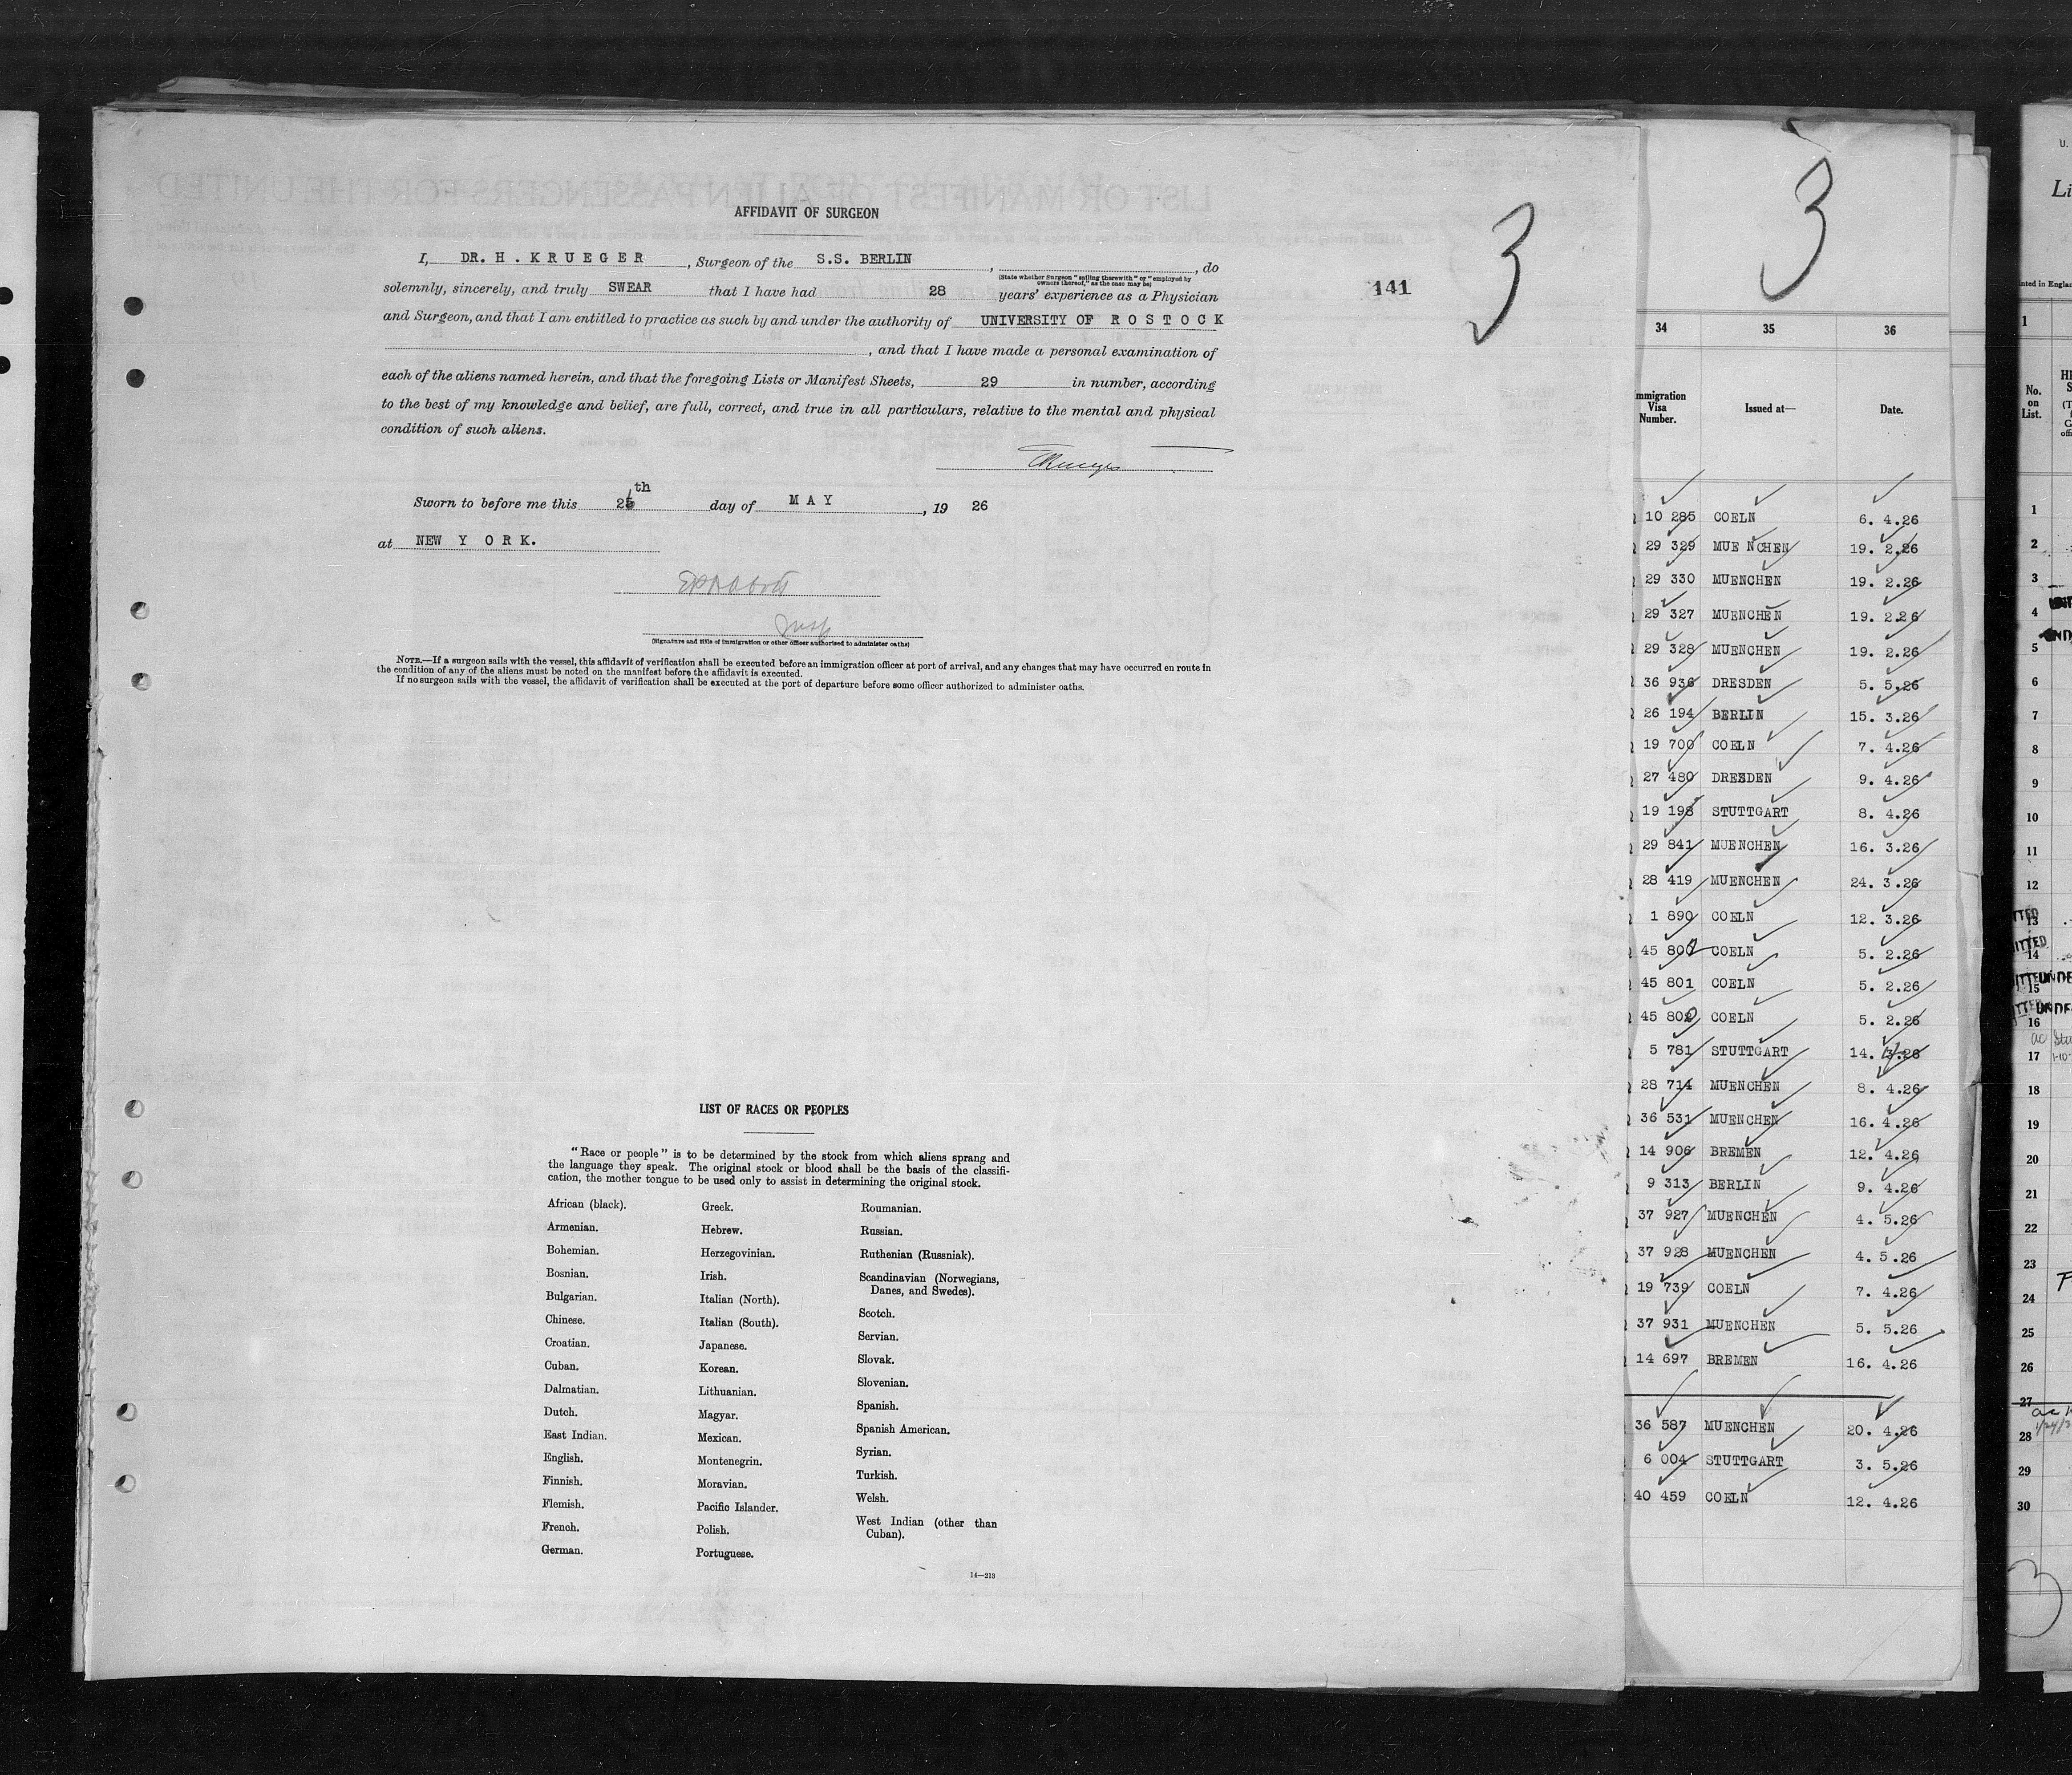 AFFIDAVIT OF SURGEON
I, DR. H. KRUEGER, Surgeon of the S.S. BERLIN, , do
(State whether Surgeon "sailing therewith" or "employed by owners thereof," as the case may be)
solemnly, sincerely, and truly SWEAR that I have had 28 years' experience as a Physician
and Surgeon, and that I am entitled to practice as such by and under the authority of UNIVERSITY OF ROSTOCK
, and that I have made a personal examination of
each of the aliens named herein, and that the foregoing Lists or Manifest Sheets, 29 in number, according
to the best of my knowledge and belief, are full, correct, and true in all particulars, relative to the mental and physical
condition of such aliens.
Sworn to before me this th day of MAY, 19 26
at NEW YORK.
(Signature and title of immigration or other officer authorized to administer oaths)
NOTE.—If a surgeon sails with the vessel, this affidavit of verification shall be executed before an immigration officer at port of arrival, and any changes that may have occurred en route in
the condition of any of the aliens must be noted on the manifest before the affidavit is executed.
If no surgeon sails with the vessel, the affidavit of verification shall be executed at the port of departure before some officer authorized to administer oaths.
3
141
LIST OF RACES OR PEOPLES
"Race or people" is to be determined by the stock from which aliens sprang and
the language they speak. The original stock or blood shall be the basis of the classifi-
cation, the mother tongue to be used only to assist in determining the original stock.
African (black).
Armenian.
Bohemian.
Bosnian.
Bulgarian.
Chinese.
Croatian.
Cuban.
Dalmatian.
Dutch.
East Indian.
English.
Finnish.
Flemish.
French.
German.
Greek.
Hebrew.
Herzegovinian.
Irish.
Italian (North).
Italian (South).
Japanese.
Korean.
Lithuanian.
Magyar.
Mexican.
Montenegrin.
Moravian.
Pacific Islander.
Polish.
Portuguese.
Roumanian.
Russian.
Ruthenian (Russniak).
Scandinavian (Norwegians,
Danes, and Swedes).
Scotch.
Servian.
Slovak.
Slovenian.
Spanish.
Spanish American.
Syrian.
Turkish.
Welsh.
West Indian (other than
Cuban).
14—213
3
34 35 36
Immigration Visa Number. Issued at— Date.
10 285 COELN 6. 4.26
29 329 MUENCHEN 19. 2.26
29 330 MUENCHEN 19. 2.26
29 327 MUENCHEN 19. 2.26
29 328 MUENCHEN 19. 2.26
36 936 DRESDEN 5. 5.26
26 194 BERLIN 15. 3.26
19 700 COELN 7. 4.26
27 480 DRESDEN 9. 4.26
19 198 STUTTGART 8. 4.26
29 841 MUENCHEN 16. 3.26
28 419 MUENCHEN 24. 3.26
1 890 COELN 12. 3.26
45 800 COELN 5. 2.26
45 801 COELN 5. 2.26
45 802 COELN 5. 2.26
5 781 STUTTGART 14.
28 714 MUENCHEN 8. 4.26
36 531 MUENCHEN 16. 4.26
14 906 BREMEN 12. 4.26
9 313 BERLIN 9. 4.26
37 927 MUENCHEN 4. 5.26
37 928 MUENCHEN 4. 5.26
19 739 COELN 7. 4.26
37 931 MUENCHEN 5. 5.26
14 697 BREMEN 16. 4.26
36 587 MUENCHEN 20. 4.26
6 004 STUTTGART 3. 5.26
40 459 COELN 12. 4.26
1
No.
on
List.
1
2
3
4
5
6
7
8
9
10
11
12
13
14
15
16
17
18
19
20
21
22
23
24
25
26
27
28
29
30
3